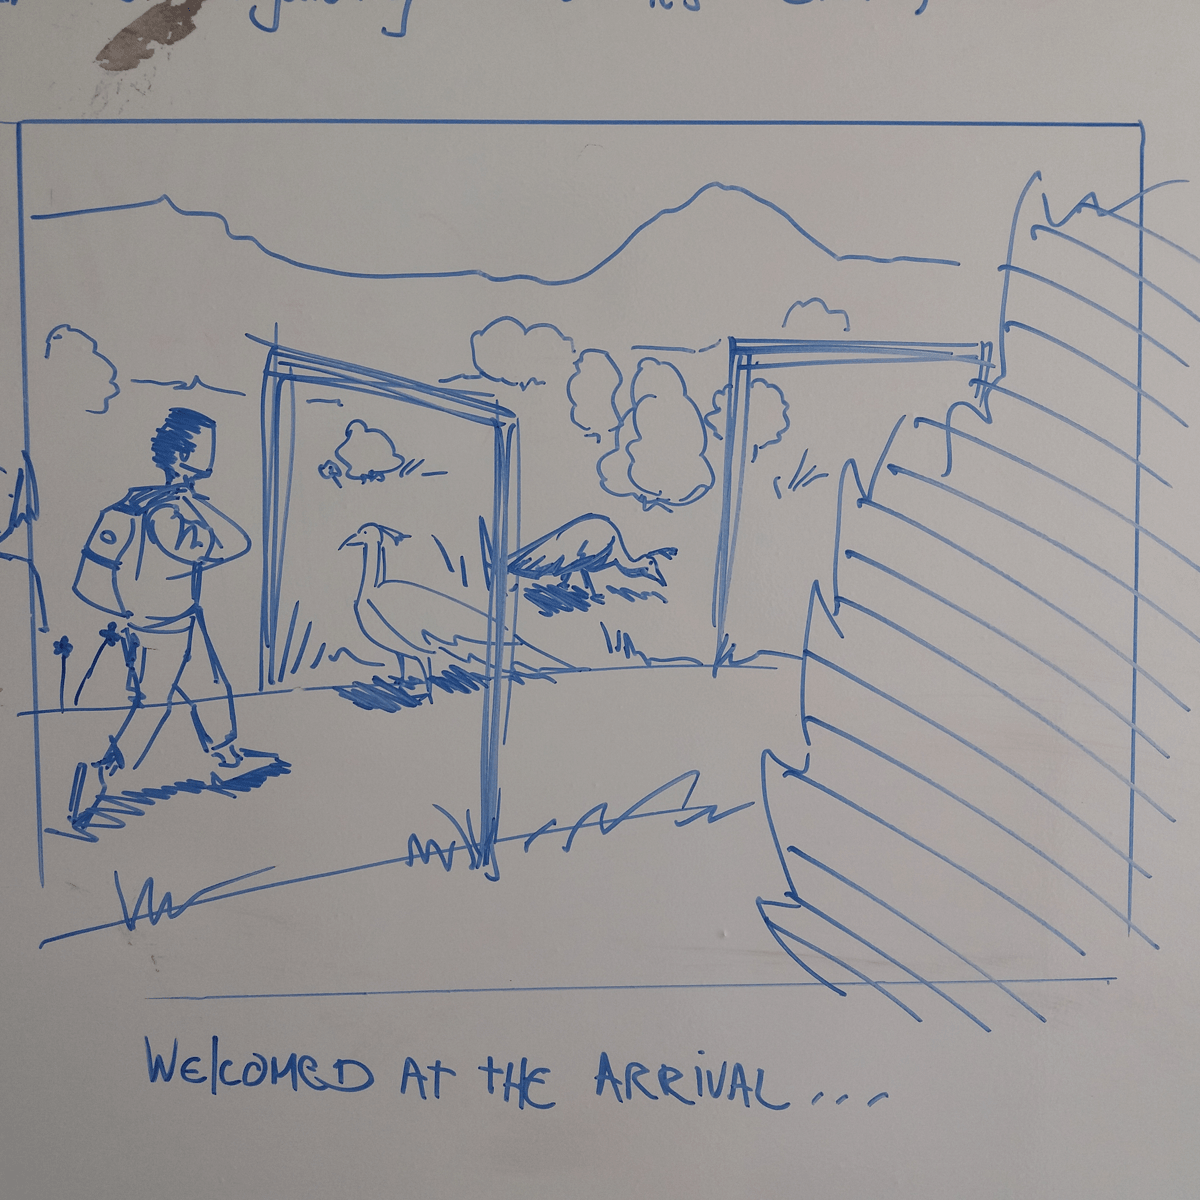 WELCOMED AT THE ARRIVAL...